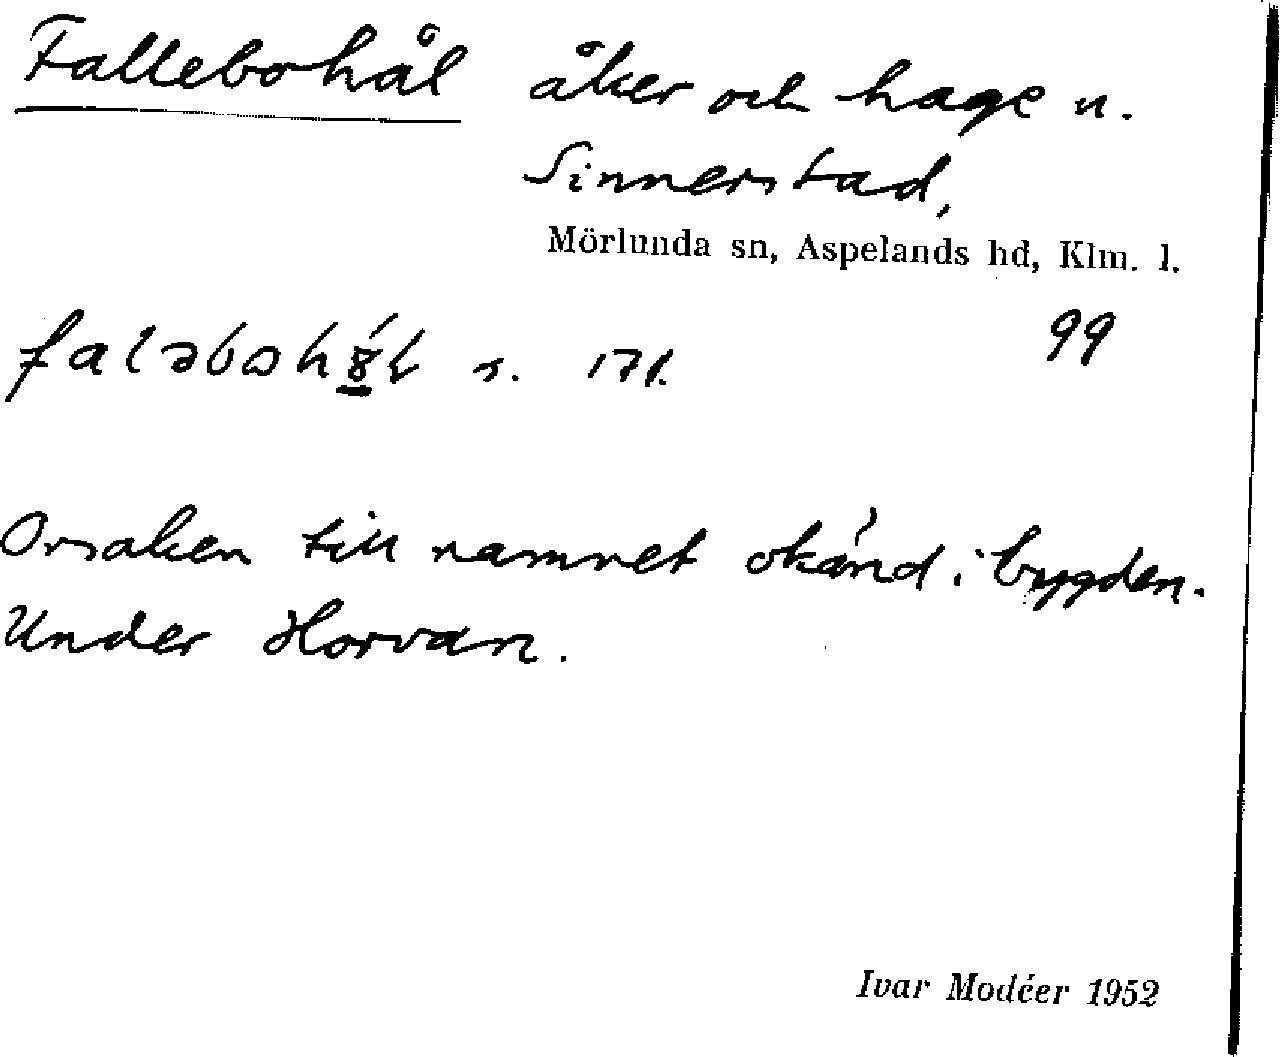 Fallebohål åker och hage u.
Sinnerstad,
Mörlunda sn, Aspelands hd, Klm. l.
99
Orsaken till namnet okänd i bygden.
Under Horvan.
Ivar Modéer 1952